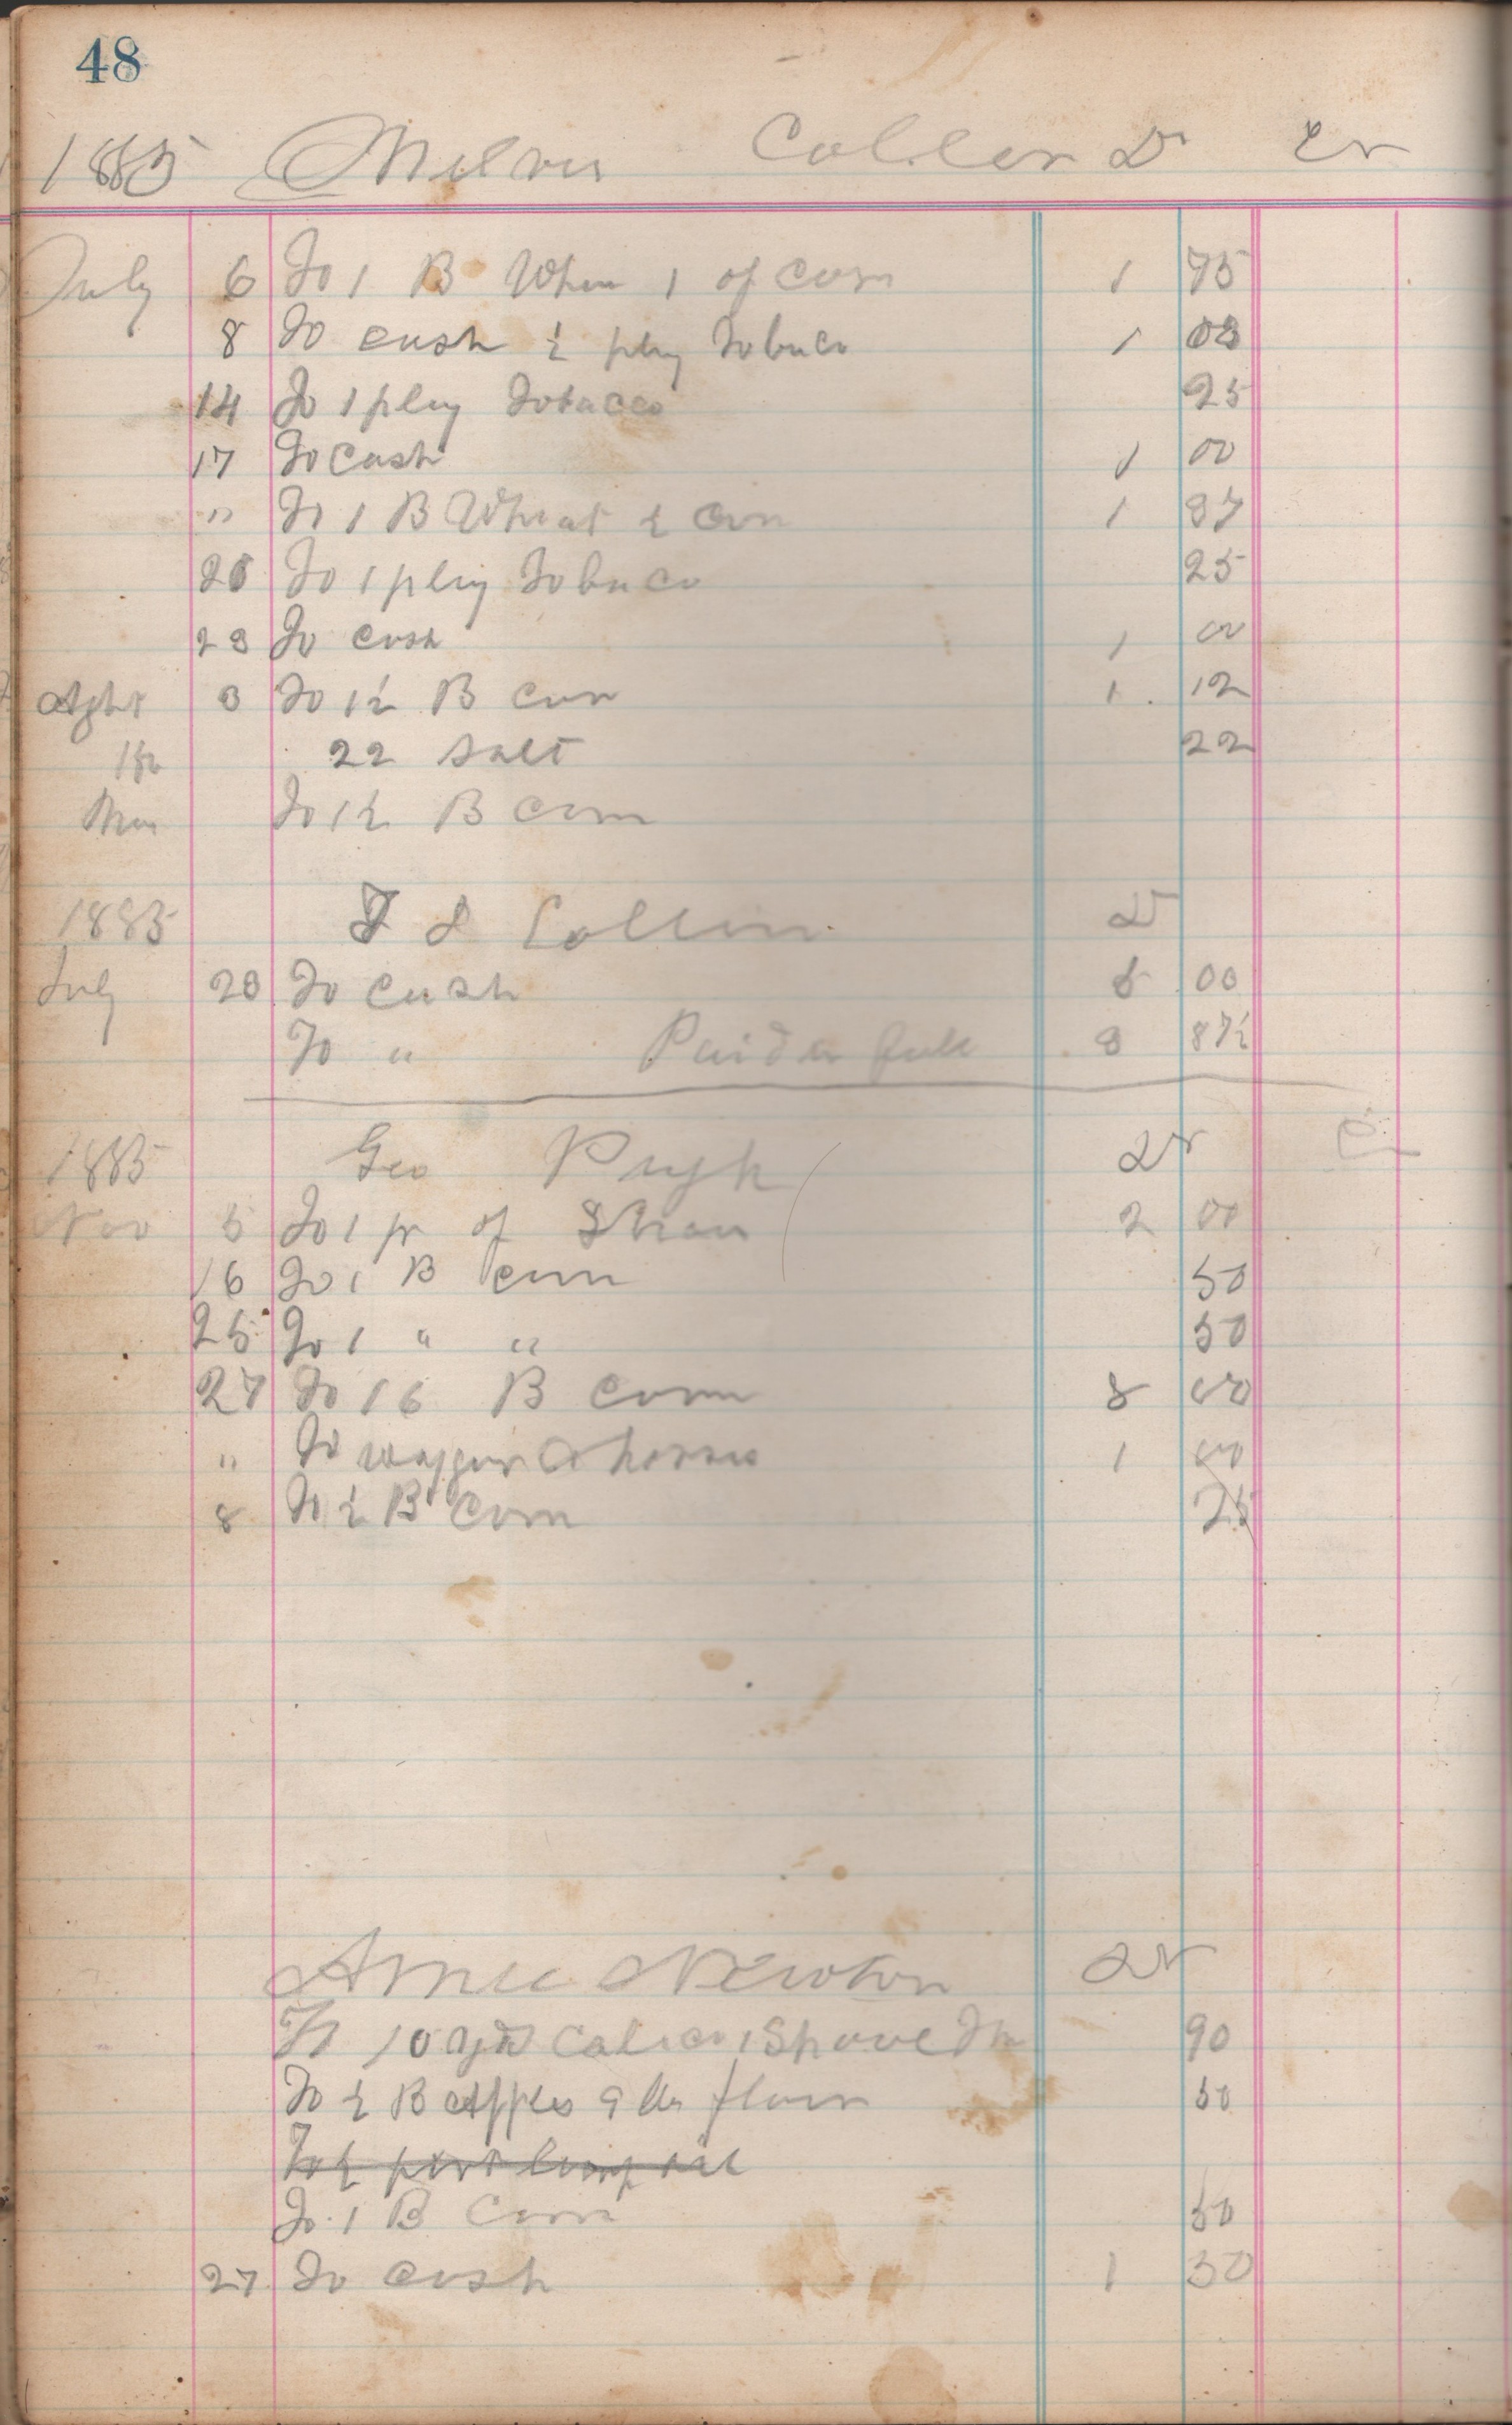 48
1885 Coller Dr Cr
July 6 To 1 B Whea 1 of Corn 1 75
8 To cash ½ plug Tobaco 1 03
14 To 1 plug Tobacco 25
17 To Cash 1 00
" To 1 B Wheat ½ Corn 1 37
26 To 1 plug Tobaco 25
23 To cash 1 00
3 To 1½ B corn 1 12
22 Salt 22
To 1½ B corn
1885 Collin Dr
July 28 To cash 5 00
To " Paid in full 3 87½
1885 Geo Pugh Dr Cr
Nov 5 To 1 pr of Shoes 2 00
16 To 1 B corn 50
25 To 1 " " 50
27 To 16 B Corn 8 00
" To waggon & horses 1 00
8 To ½ B Corn 25
Newton Dr
To 10 yds Calico 1 90
To ½ B Apples 9 lbs flour 50
To ½ pint lamp oil
To 1 B Corn 50
27 To cash 1 50